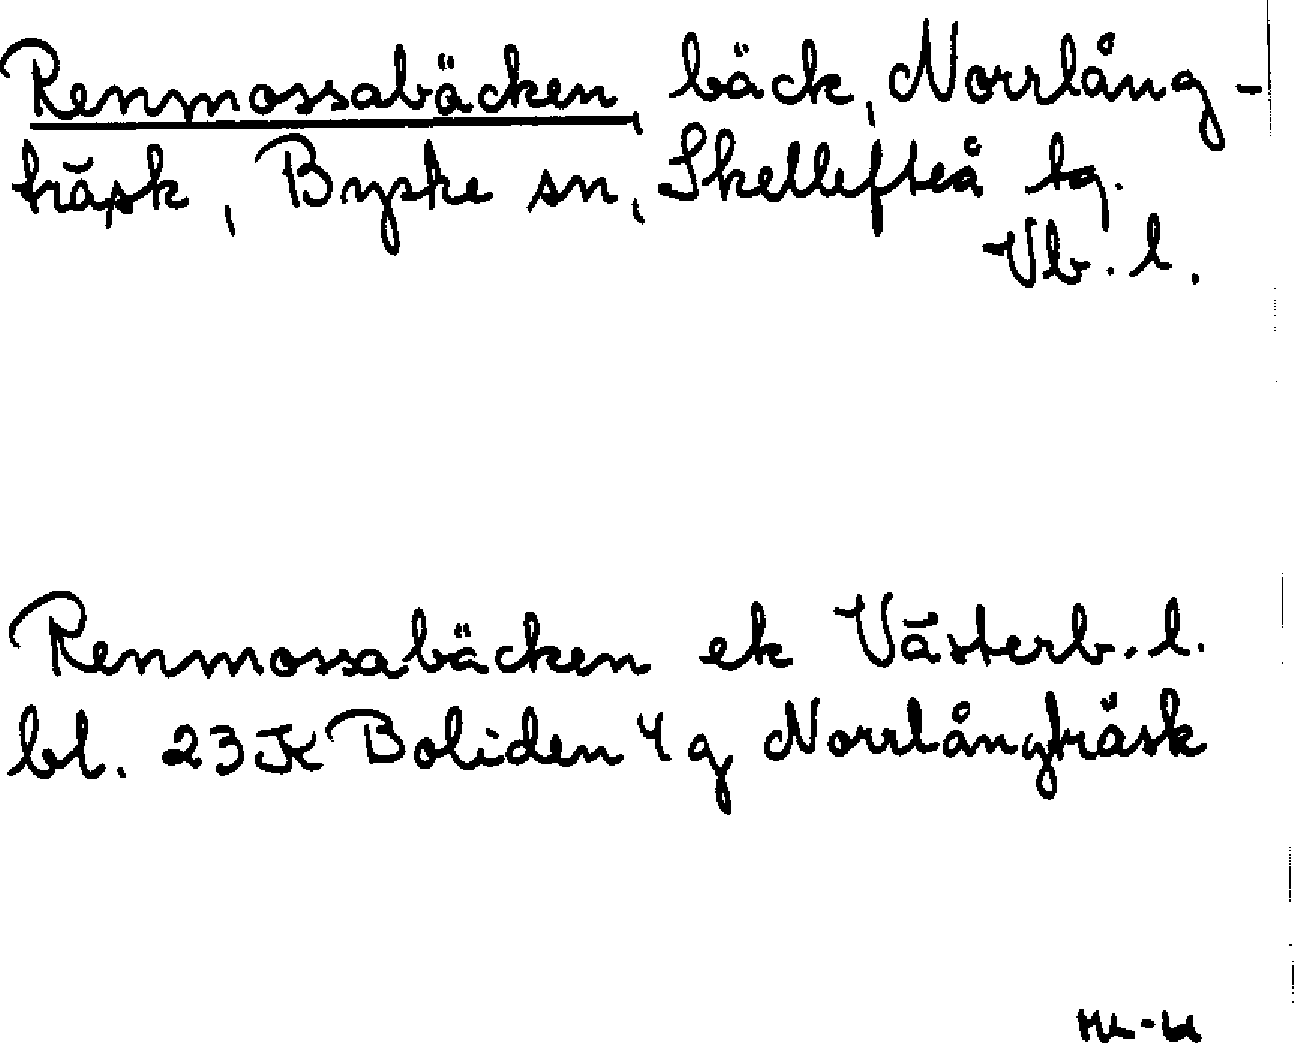 Renmossabäcken, bäck, Norrlång-
träsk, Byske sn, Skellefteå tg.
Vb. l.
Renmossabäcken ek Västerb. l.
bl. 23K Boliden 4g Norrlångträsk